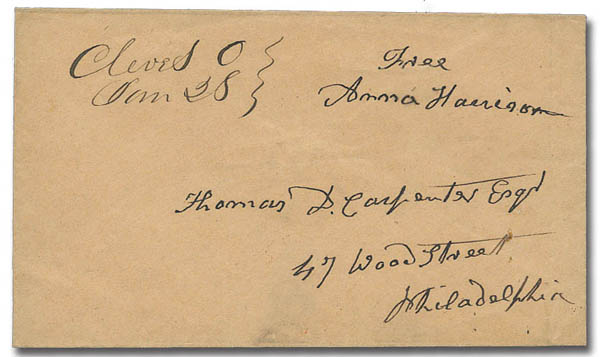 Cleves O
Jan 28
Free
Anna Harrison
Thomas D. Carpenter Esqr
47 Wood Street
Philadelphia